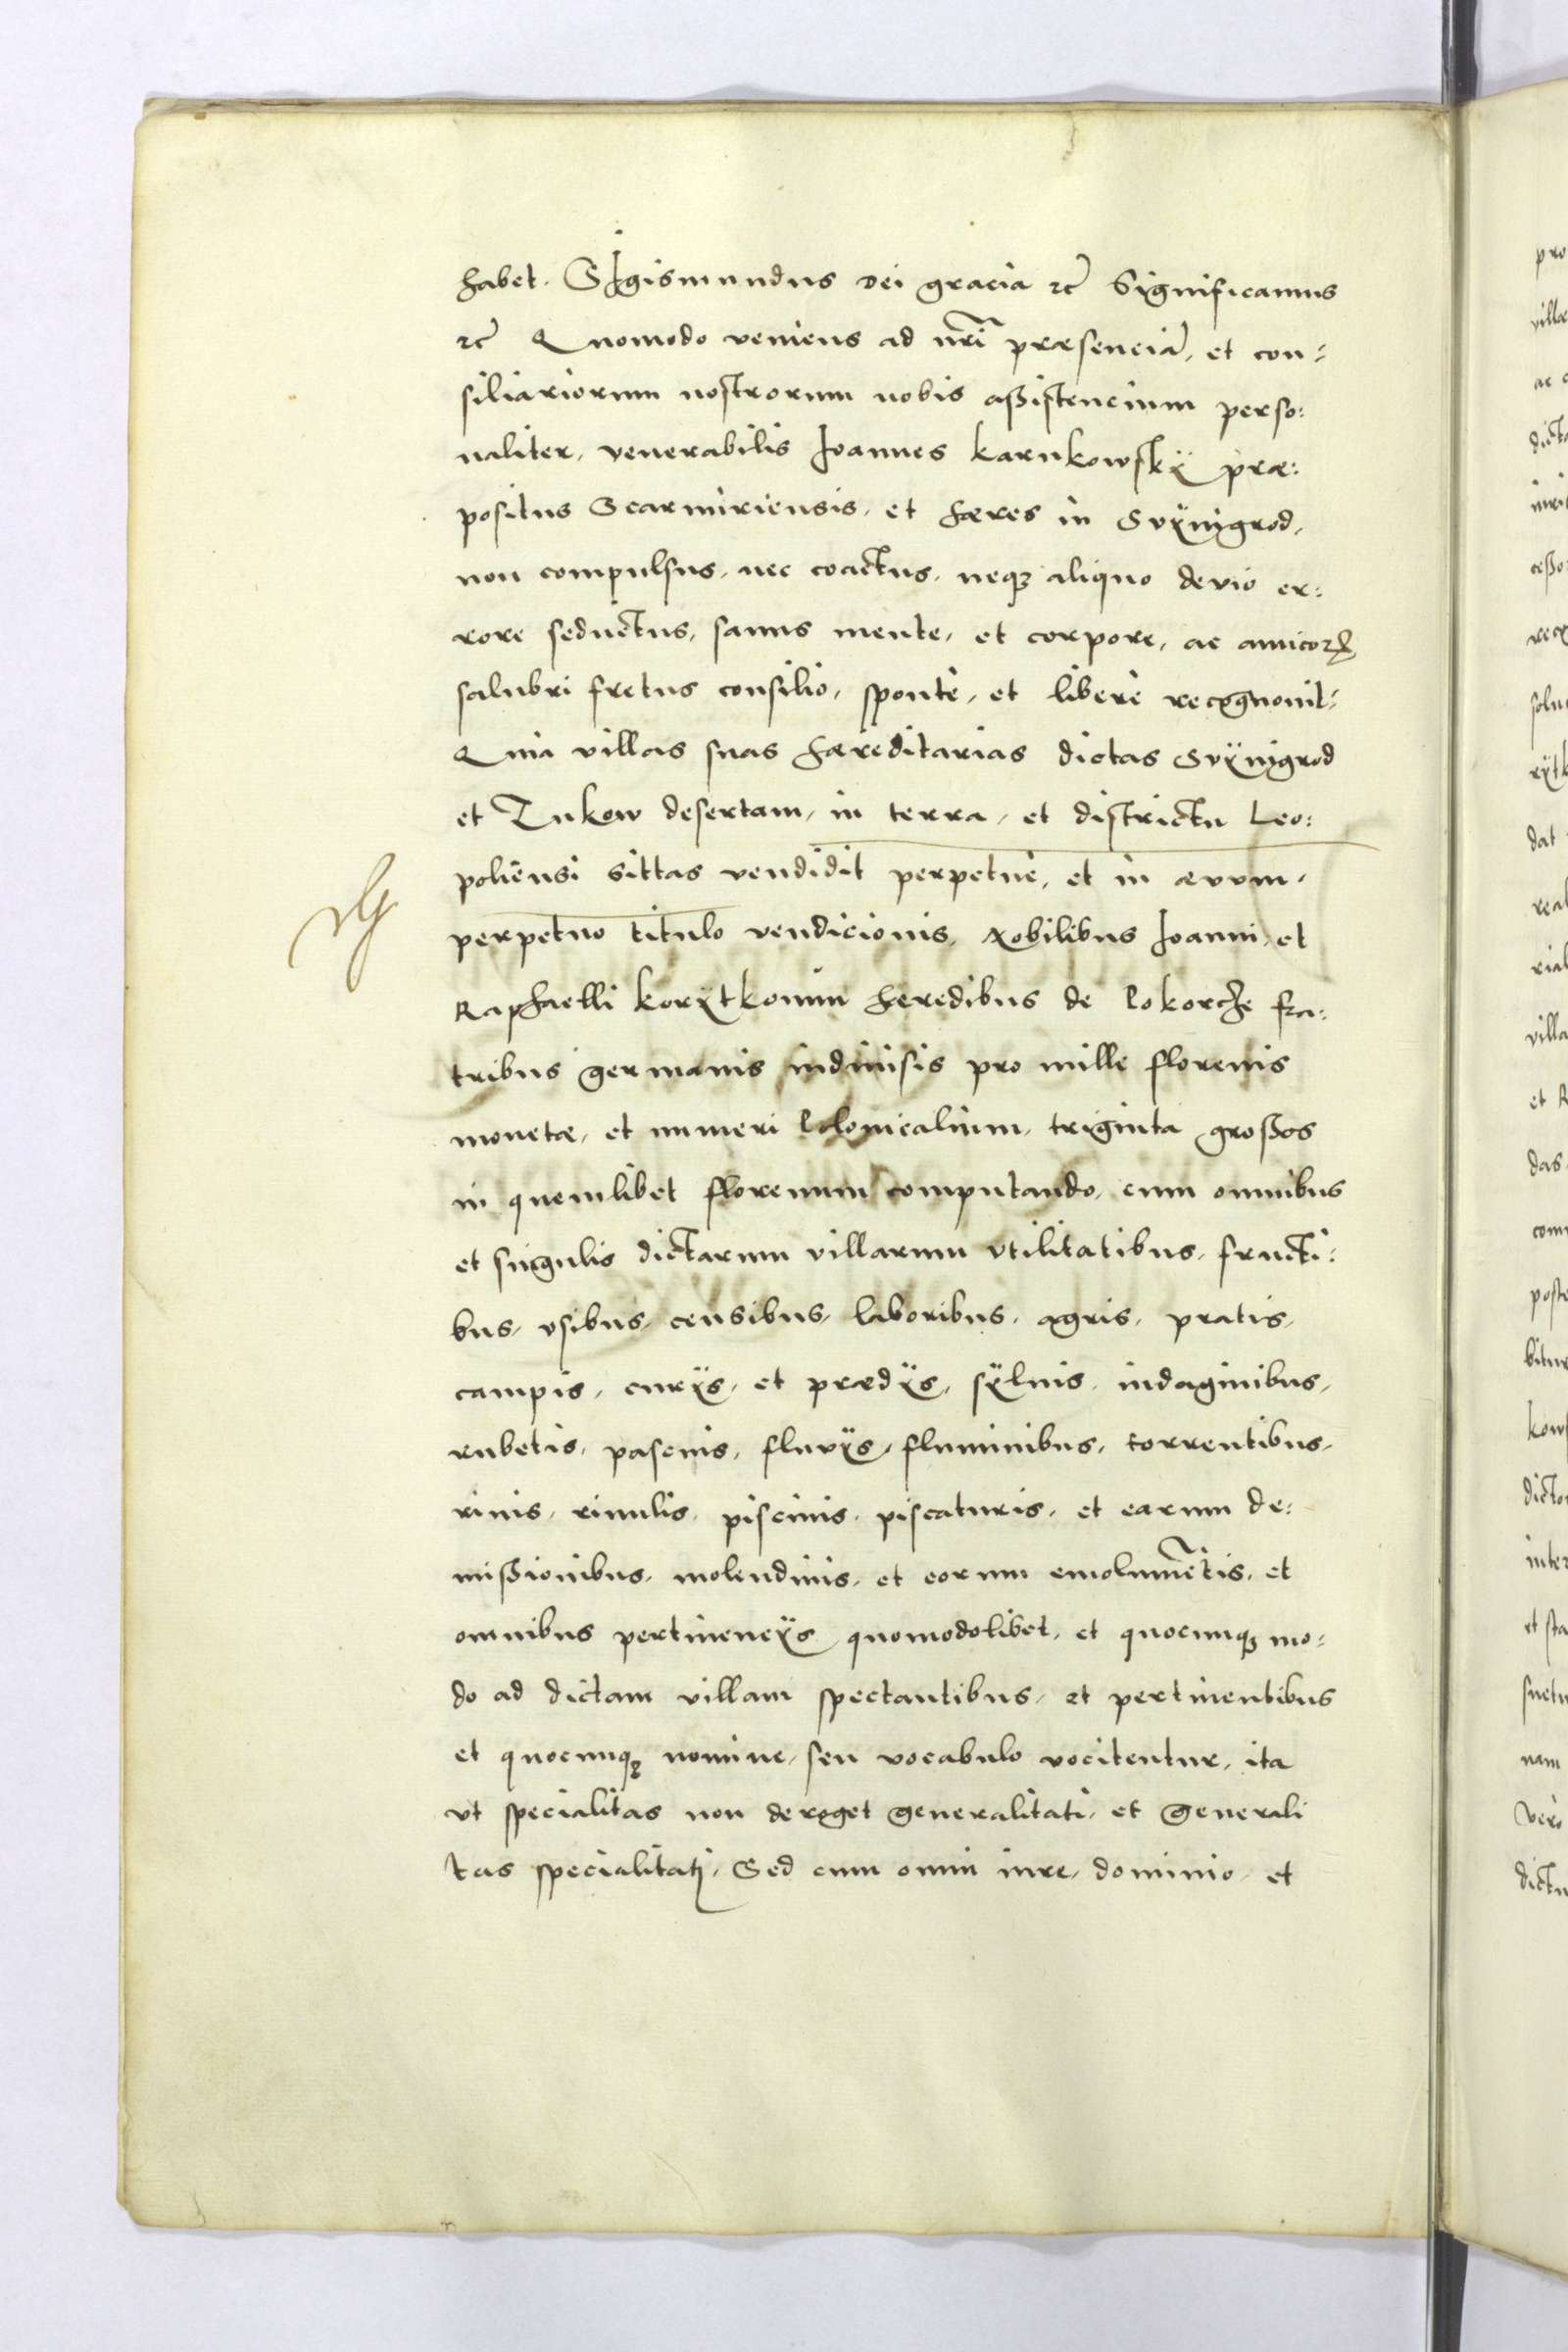 habet. SIgismundus Dei gracia etc̃ Significamus
etc̃ Quomodo veniens ad nr̃i præsenciã, et con=
siliariorum nostrorum nobis aßistencium perso:
naliter, venerabilis Ioannes karnkowskÿ præ:
positus Scarmiriensis, et hæres in Svÿnigrod,
non compulsus, nec coactus, neqꝫ aliquo devio er:
rore seductus, sanus mente, et corpore, ac amicorꝝ
salubri fretus consilio, spontè, et liberè recognouit=
Quia villas suas hæreditarias dictas Svÿnigrod
et Tukow desertam, in terra, et districtu Leo:
poliensi sittas vendidit perpetuè, et in ævum,
perpetuo titulo vendicionis, Nobilibus Ioanni, et
Raphaelli korÿtkonim heredibus de Pokorche fra:
tribus germanis indiuisis pro mille florenis
monetæ, et numeri Polonicalium, triginta großos
in quemlibet florenum computando, cum omnibus
et singulis dictarum villarum vtilitatibus, fructi:
bus, vsibus, censibus, laboribus, agris, pratis,
campis, curÿs, et prædÿs, sÿluis, indaginibus,
rubetis, pascuis, fluvÿs, fluminibus, torrentibus,
riuis, riuulis, piscinis, piscaturis, et earum de:
mißionibus, molendinis, et eorum emolumẽtis, et
omnibus pertinencÿs quomodolibet, et quocunqꝫ mo:
do ad dictam villam spectantibus, et pertinentibus
et quocunqꝫ nomine, seu vocabulo vocitentur, ita
vt specialitas non deroget generalitati, et generali
tas specialitati, Sed cum omni iure, dominio, et